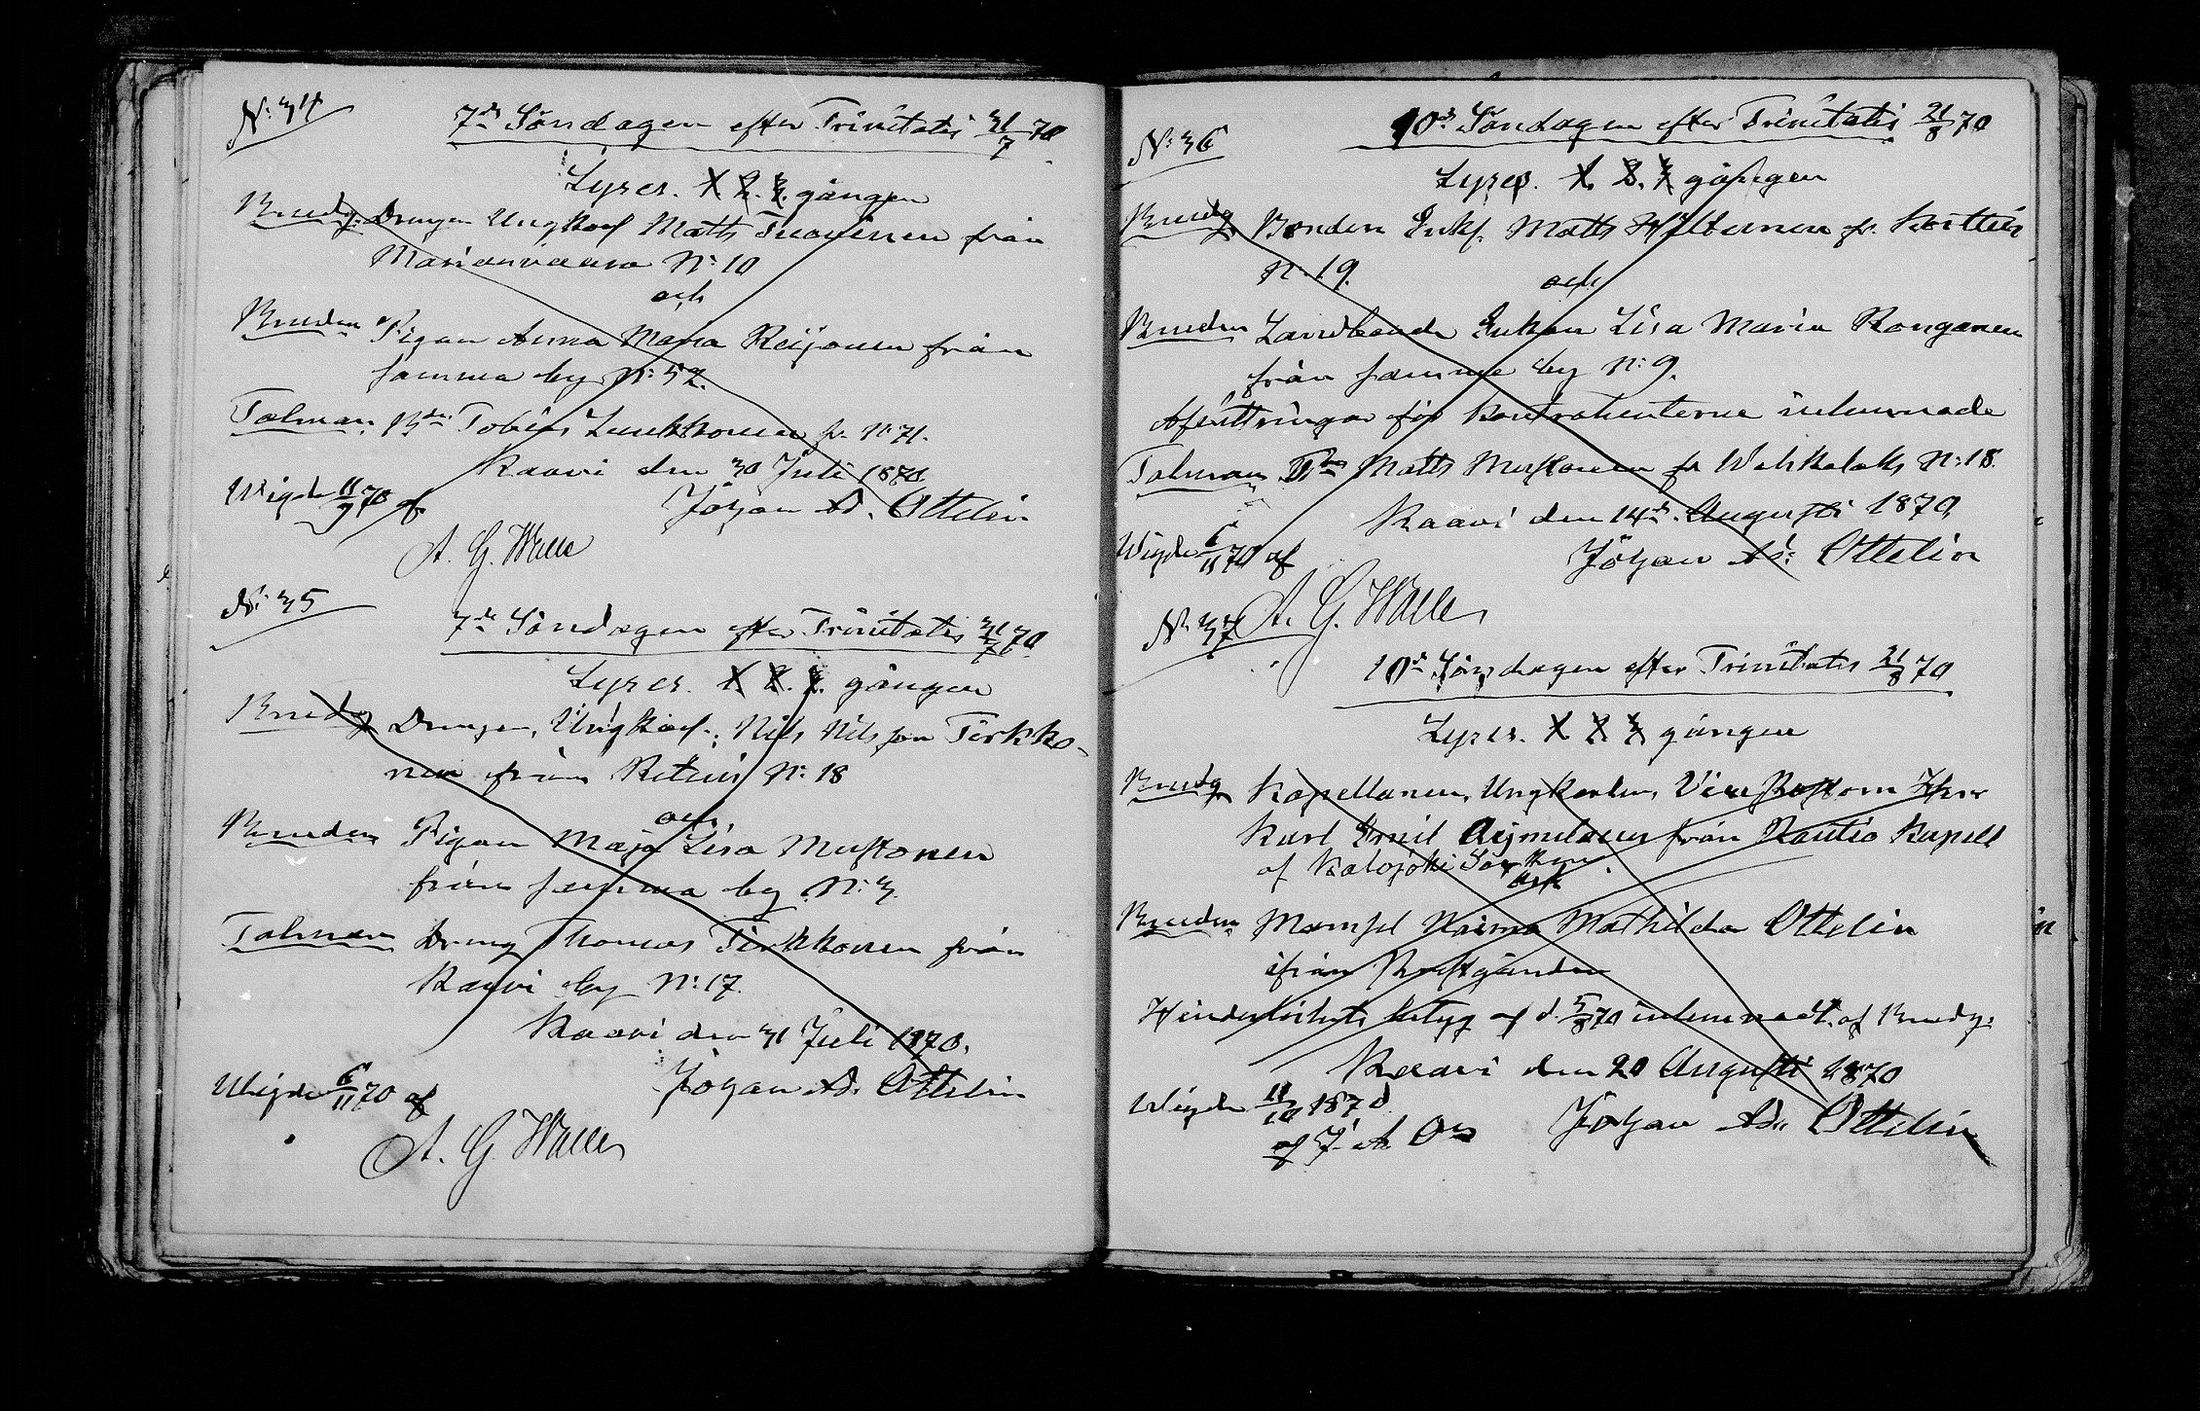 N:34
7de Söndagen efter Trinitatis 31/7 70
Lyses. 1. 2. 3. gången
Brudg. Drengen Ungkarl Matts Tuovinen från
Marianvaara N:10
och
Bruden Pigan Anna Maria Reijonen från
samma by N:52.
Talman. Bde Tobias Lunkkonen fr. N:71.
Kaavi den 30 Juli 1870
Wigde 11/9 70 af
Johan Ad. Ottelin
A. G. Walle
N:35
7de Söndagen efter Trinitatis 31/7 70
Lyses. 1. 2. 3. gången
Brudg Drengen, Ungkarl. Nils Nilsson Tirkko-
nen från N:18
och
Bruden Pigan Maja Lisa Mustonen
från samma by N:3.
Talman Dreng Thomas Tirkkonen från
Kaavi by N:17.
Kaavi den 31 Juli 1870.
Wigde 6/11 70 af
Johan Ad. Ottelin
A. G. Walle
N:36
10de Söndagen efter Trinitatis 21/8 70
Lyses. 1. 2. 3 gången
Brudg Bonden Enkl. Matts Hiltunen fr. Kortteis
N:19.
och
Bruden Landbonde Enkan Lisa Maria Ronganen
från samma by N:9.
Afvittringar för kontrahenterne inlemnade
Talman Matts Mustonen fr Wehkalaks N:18.
Kaavi den 14de Augusti 1870,
Wigde 6/11 70 af
Johan Ad: Ottelin
A. G. Walle
N:37
10de Söndagen efter Trinitatis 21/8 70
Lyses. 1 2 3 gången
Brudg Kapellanen, Ungkarlen, Vice Pastorn Herr
Karl Emil Aejmelaeus från Rautio Kapell
af Kalajoki Socken
och
Bruden Mamsel Naima Mathilda Ottelin
ifrån Prestgården
Hinderlöshets betyg af d. 5/8 70 inlemnadt af Brudg:
Kaavi den 20 Augusti 1870
Wigde 11/10 1870
af J. A. On
Johan Ad. Ottelin